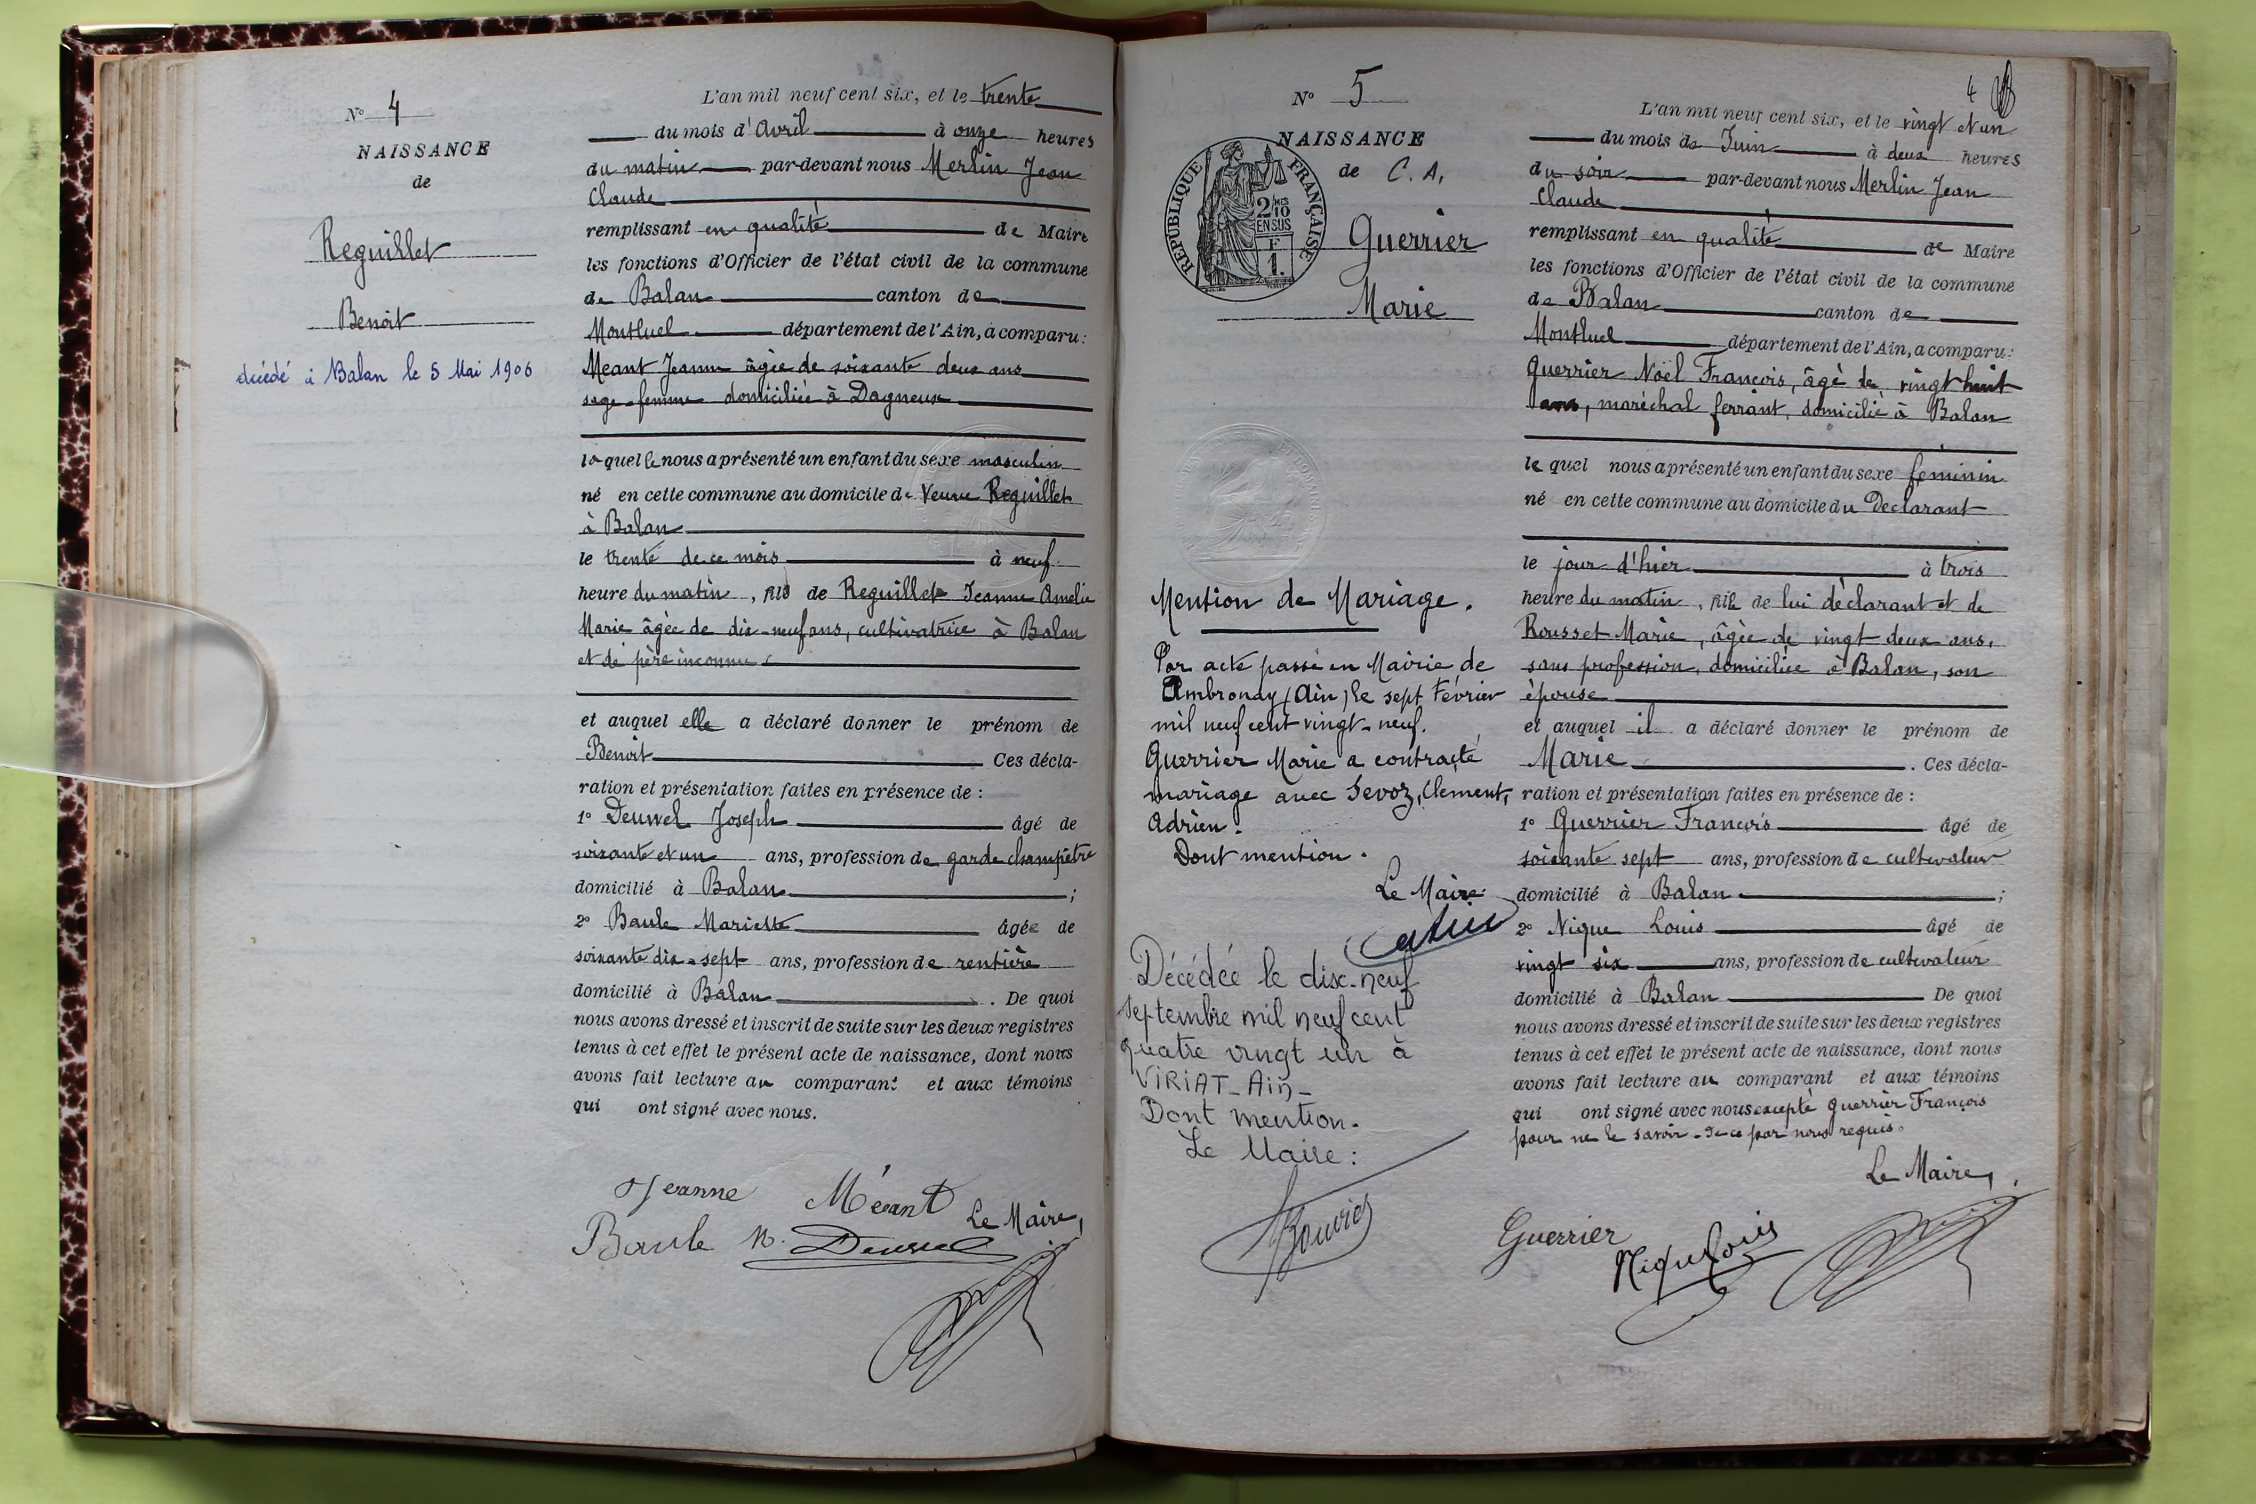 N° 4
NAISSANCE
de
Reguillet
Benoit
décédé à Balan le 5 Mai 1906
L'an mil neuf cent six, et le trente
du mois d'Avril à onze heures
du matin par-devant nous Merlin Jean
Claude
remplissant en qualité de Maire
les fonctions d'Officier de l'état civil de la commune
de Balan canton de
Montluel département de l'Ain, a comparu:
Meant Jeanne âgée de soixante deux ans
sage-femme domiciliée à Dagneux
laquelle nous a présenté un enfant du sexe masculin
né en cette commune au domicile de Veuve Reguillet
à Balan
le trente de ce mois à neuf
heure du matin, fils de Reguillet Jeanne Amelie
Marie âgée de dix-neuf ans, cultivatrice à Balan
et de père inconnu
et auquel elle a déclaré donner le prénom de
Benoit Ces décla-
ration et présentation faites en présence de :
1° Deuwel Joseph âgé de
soixante et un ans, profession de garde champêtre
domicilié à Balan ;
2° Baule Mariette âgée de
soixante dix-sept ans, profession de rentière
domicilié à Balan . De quoi
nous avons dressé et inscrit de suite sur les deux registres
tenus à cet effet le présent acte de naissance, dont nous
avons fait lecture au comparant et aux témoins
qui ont signé avec nous.
Jeanne Méant
Le Maire,
Baule M. Deuwel
N° 5
NAISSANCE
de C. A,
RÉPUBLIQUE FRANÇAISE
2/10 EN SUS
F
1.
Guerrier
Marie
Mention de Mariage.
Par acte passé en Mairie de
Ambronay (Ain) le sept Février
mil neuf cent vingt-neuf.
Guerrier Marie a contracté
mariage avec Sevoz, Clement,
Adrien.
Dont mention.
Le Maire
Décédée le dix-neuf
septembre mil neuf cent
quatre vingt un à
VIRIAT-Ain-
Dont mention.
Le Maire:
4
L'an mil neuf cent six, et le vingt et un
du mois de Juin à deux heures
du soir par-devant nous Merlin Jean
Claude
remplissant en qualité de Maire
les fonctions d'Officier de l'état civil de la commune
de Balan canton de
Montluel département de l'Ain, a comparu:
Guerrier Noël François, âgé de vingt huit
ans, maréchal ferrant, domicilié à Balan
lequel nous a présenté un enfant du sexe féminin
né en cette commune au domicile du Déclarant
le jour d'hier à trois
heure du matin, fille de lui déclarant et de
Rousset Marie, âgée de vingt deux ans,
sans profession, domiciliée à Balan, son
épouse
et auquel il a déclaré donner le prénom de
Marie . Ces décla-
ration et présentation faites en présence de :
1° Guerrier François âgé de
soixante sept ans, profession de cultivateur
domicilié à Balan ;
2° Nique Louis âgé de
vingt six ans, profession de cultivateur
domicilié à Balan De quoi
nous avons dressé et inscrit de suite sur les deux registres
tenus à cet effet le présent acte de naissance, dont nous
avons fait lecture au comparant et aux témoins
qui ont signé avec nous excepté Guerrier François
pour ne le savoir de ce par nous requis.
Le Maire,
Guerrier
Nique Louis